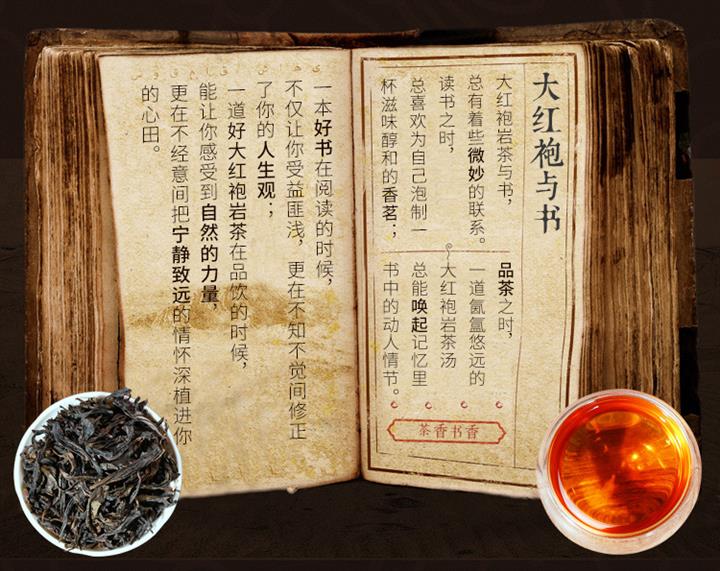 大红袍与书
大红袍岩茶与书，
总有着些微妙的联系。
读书之时，
总喜欢为自己泡制一
杯滋味醇和的香茗；
品茶之时，
一道氤氲悠远的
大红袍岩茶汤
总能唤起记忆里
书中的动人情节。
茶香书香
一本好书在阅读的时候，
不仅让你受益匪浅，更在不知不觉间修正
了你的人生观；
一道好大红袍岩茶在品饮的时候，
能让你感受到自然的力量，
更在不经意间把宁静致远的情怀深植进你
的心田。